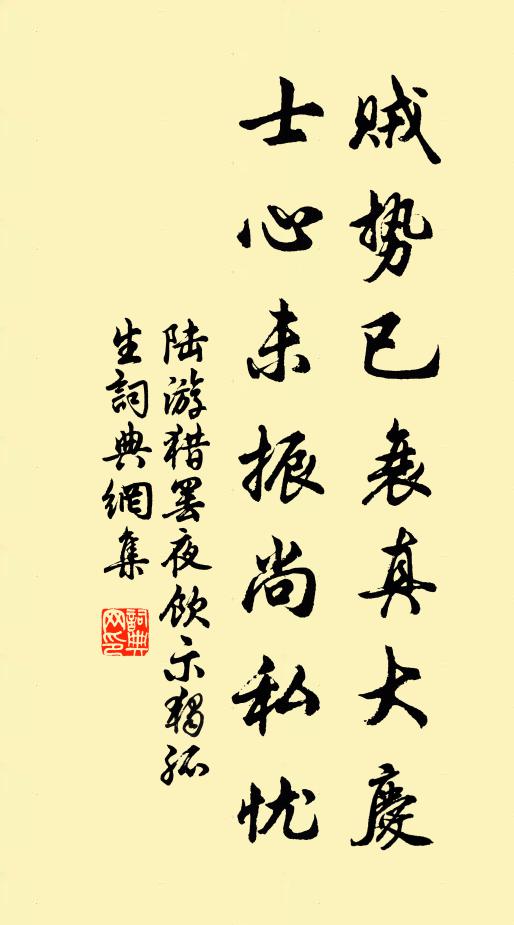 贼势已衰真大慶
士心未振尚私忧
陆游猎罢夜饮示獨孤
生詞典網集
詞典
网印